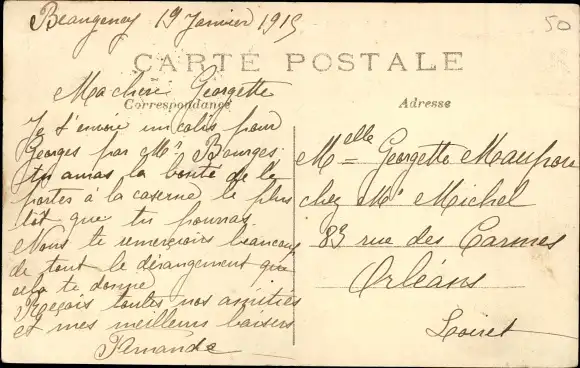 Beaugency 19 Janvier 1915
50
CARTE POSTALE
Ma chère Georgette
Correspondance
Adresse
Je t'envoie un colis pour
Georges par Mr Bourges.
tu auras la bonté de le
porter à la caserne le plus
tôt que tu pourras
Nous te remercions beaucoup
de tout le dérangement que
cela te donne
Reçois toutes nos amitiés
et mes meilleurs baisers
Fernande
Melle Georgette
chez Mr Michel
83 rue des Carmes
Orléans
Loiret